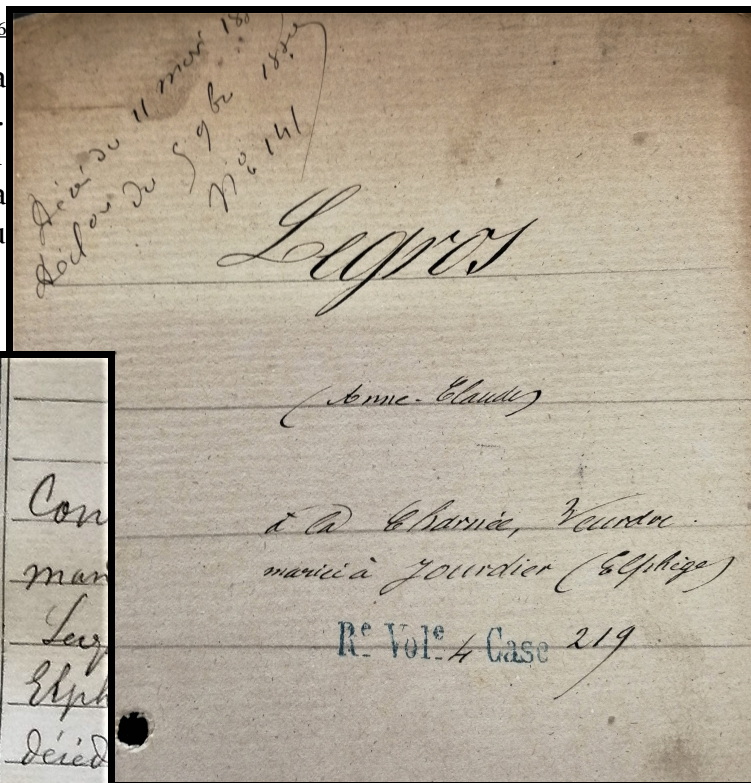 Décès du 11 mars
Déclon du 5 9bre
No 141
Legros
(Anne-Claude)
à la Charnée,
mariée à Jourdier (Elphige)
Re Vole 4 Case 219
Con
mar
Leg
Elph
décéd